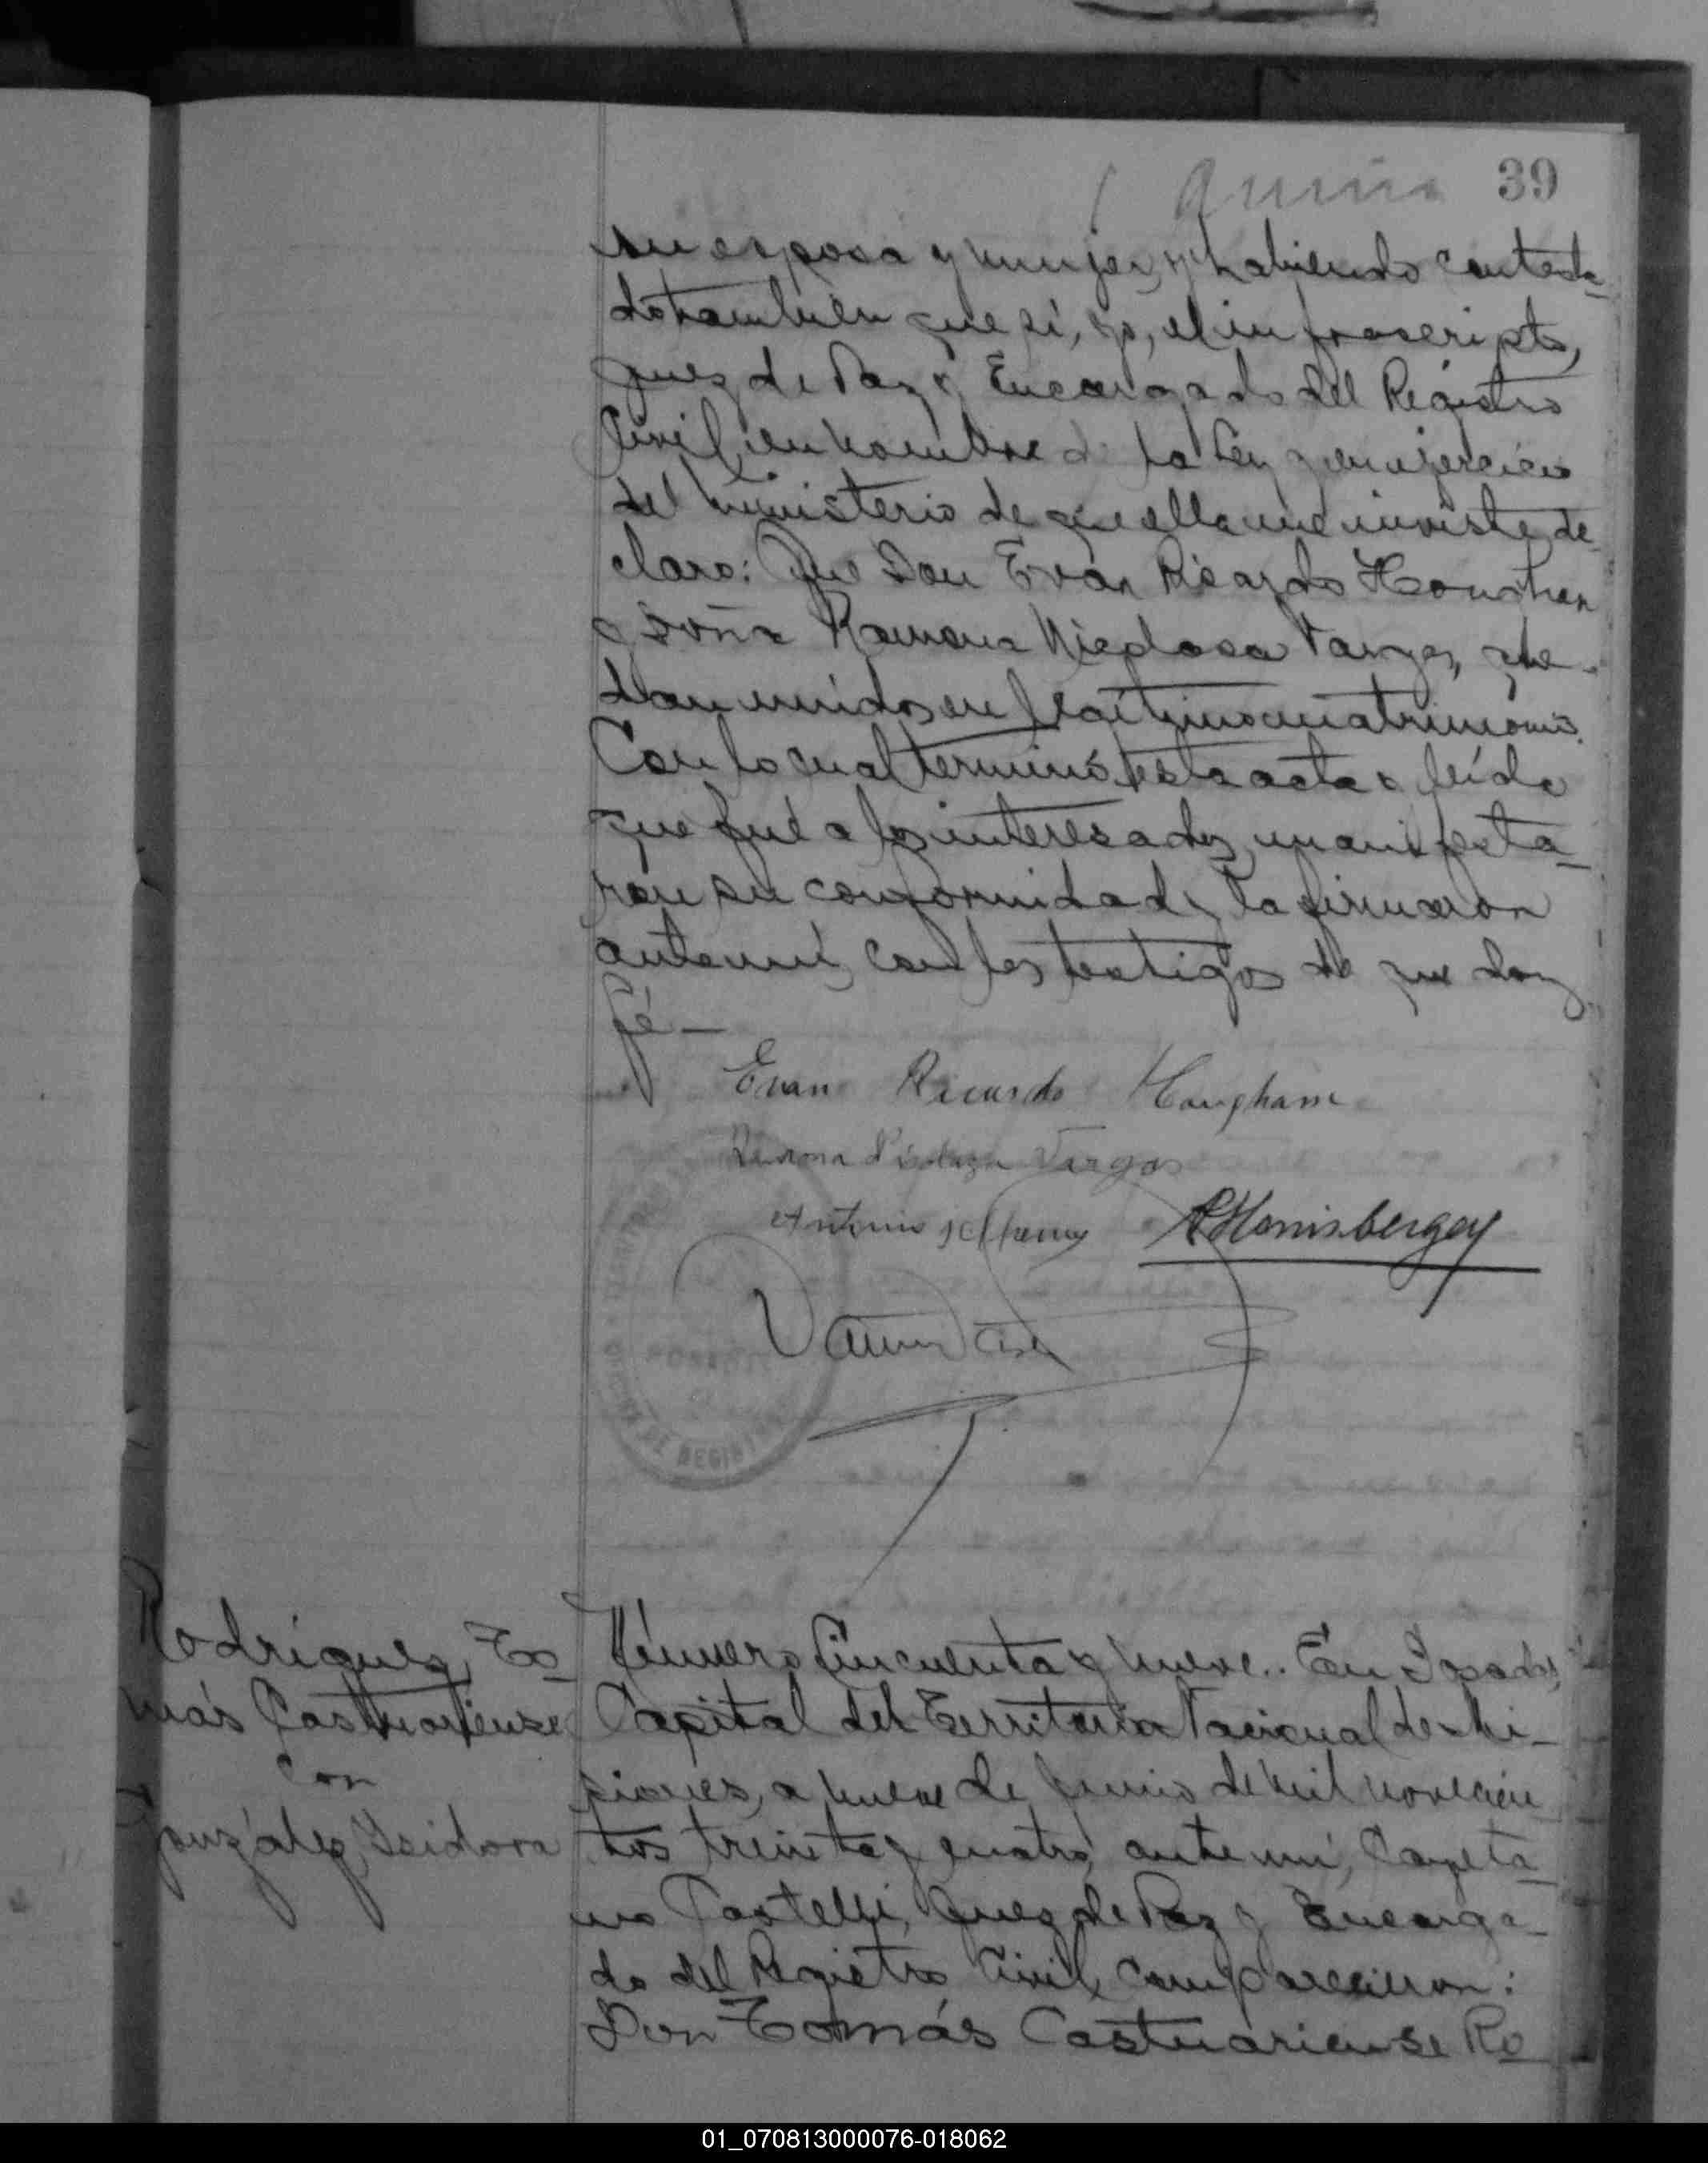 39
su esposa y mujer, y habiendo contesta-
do tambien que sí, yo, el infrascripto,
Juez de Paz y Encargado del Registro
Civil, en nombre de la Ley y en ejercicio
del ministerio de que ella me inviste de-
claro: Que Don Evan Ricardo
y Doña Ramona Niedosa Vargas, que-
dan unidos en legítimo matrimonio.
Con lo cual terminó esta acta y leída
que fué a los interesados, manifesta-
ron su conformidad y la firmaron
ante mí, con los testigos de que doy
fé—
Evan Ricardo Houghham
Ramona Vargas
Antonio
OFICINA DE REGISTRO
Rodríguez, To-
más Castuariense
con
González, Isidora
Número Cincuenta y nueve.. En Posadas,
Capital del Territorio Nacional de Mi-
siones, a nueve de Junio de mil novecien-
tos treinta y cuatro, ante mí, Cayeta-
no Castelli, Juez de Paz y Encarga-
do del Registro Civil, comparecieron:
Don Tomás Castuariense Ro-
01_070813000076-018062